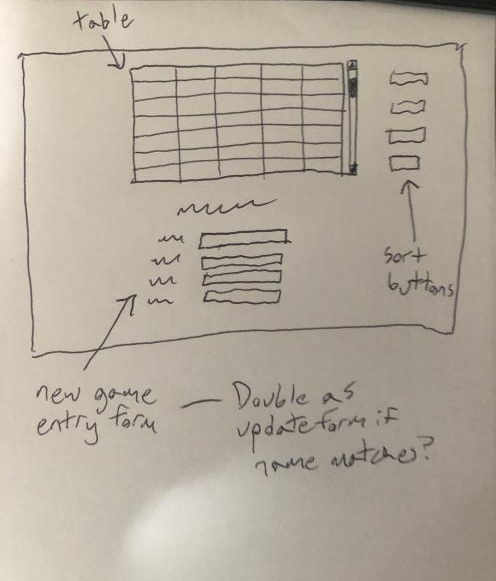 table
sort
buttons
new game
entry form — Double as
update form if
name matches?